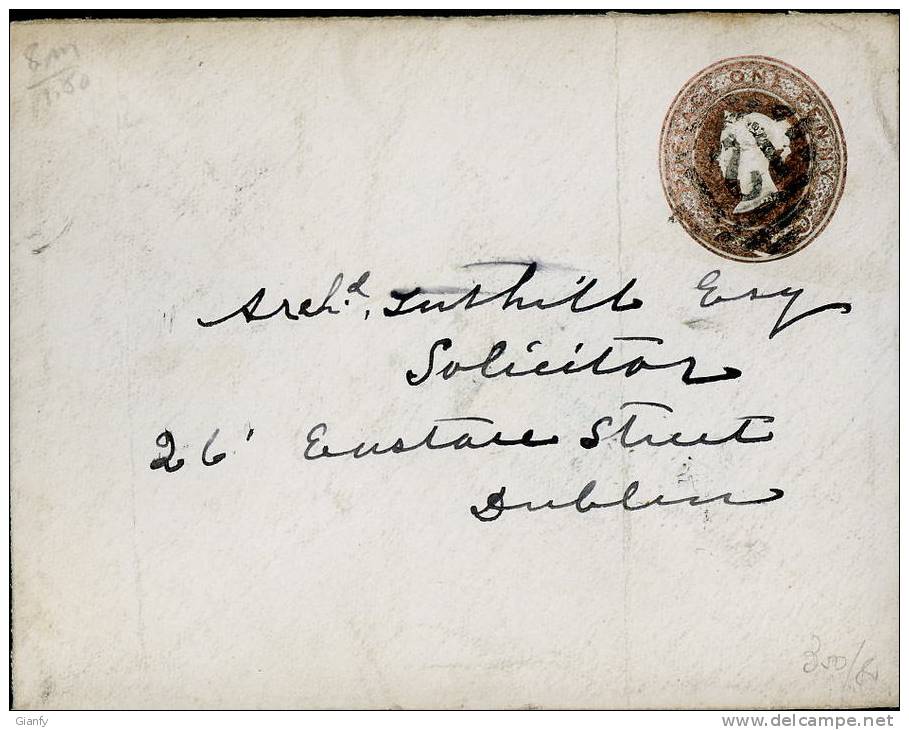 8 m
1.80
ONE PENNY
Archd. Tuthill Esq
Solicitor
26 Eustace Street
Dublin
300/
Gianfy
www.delcampe.net